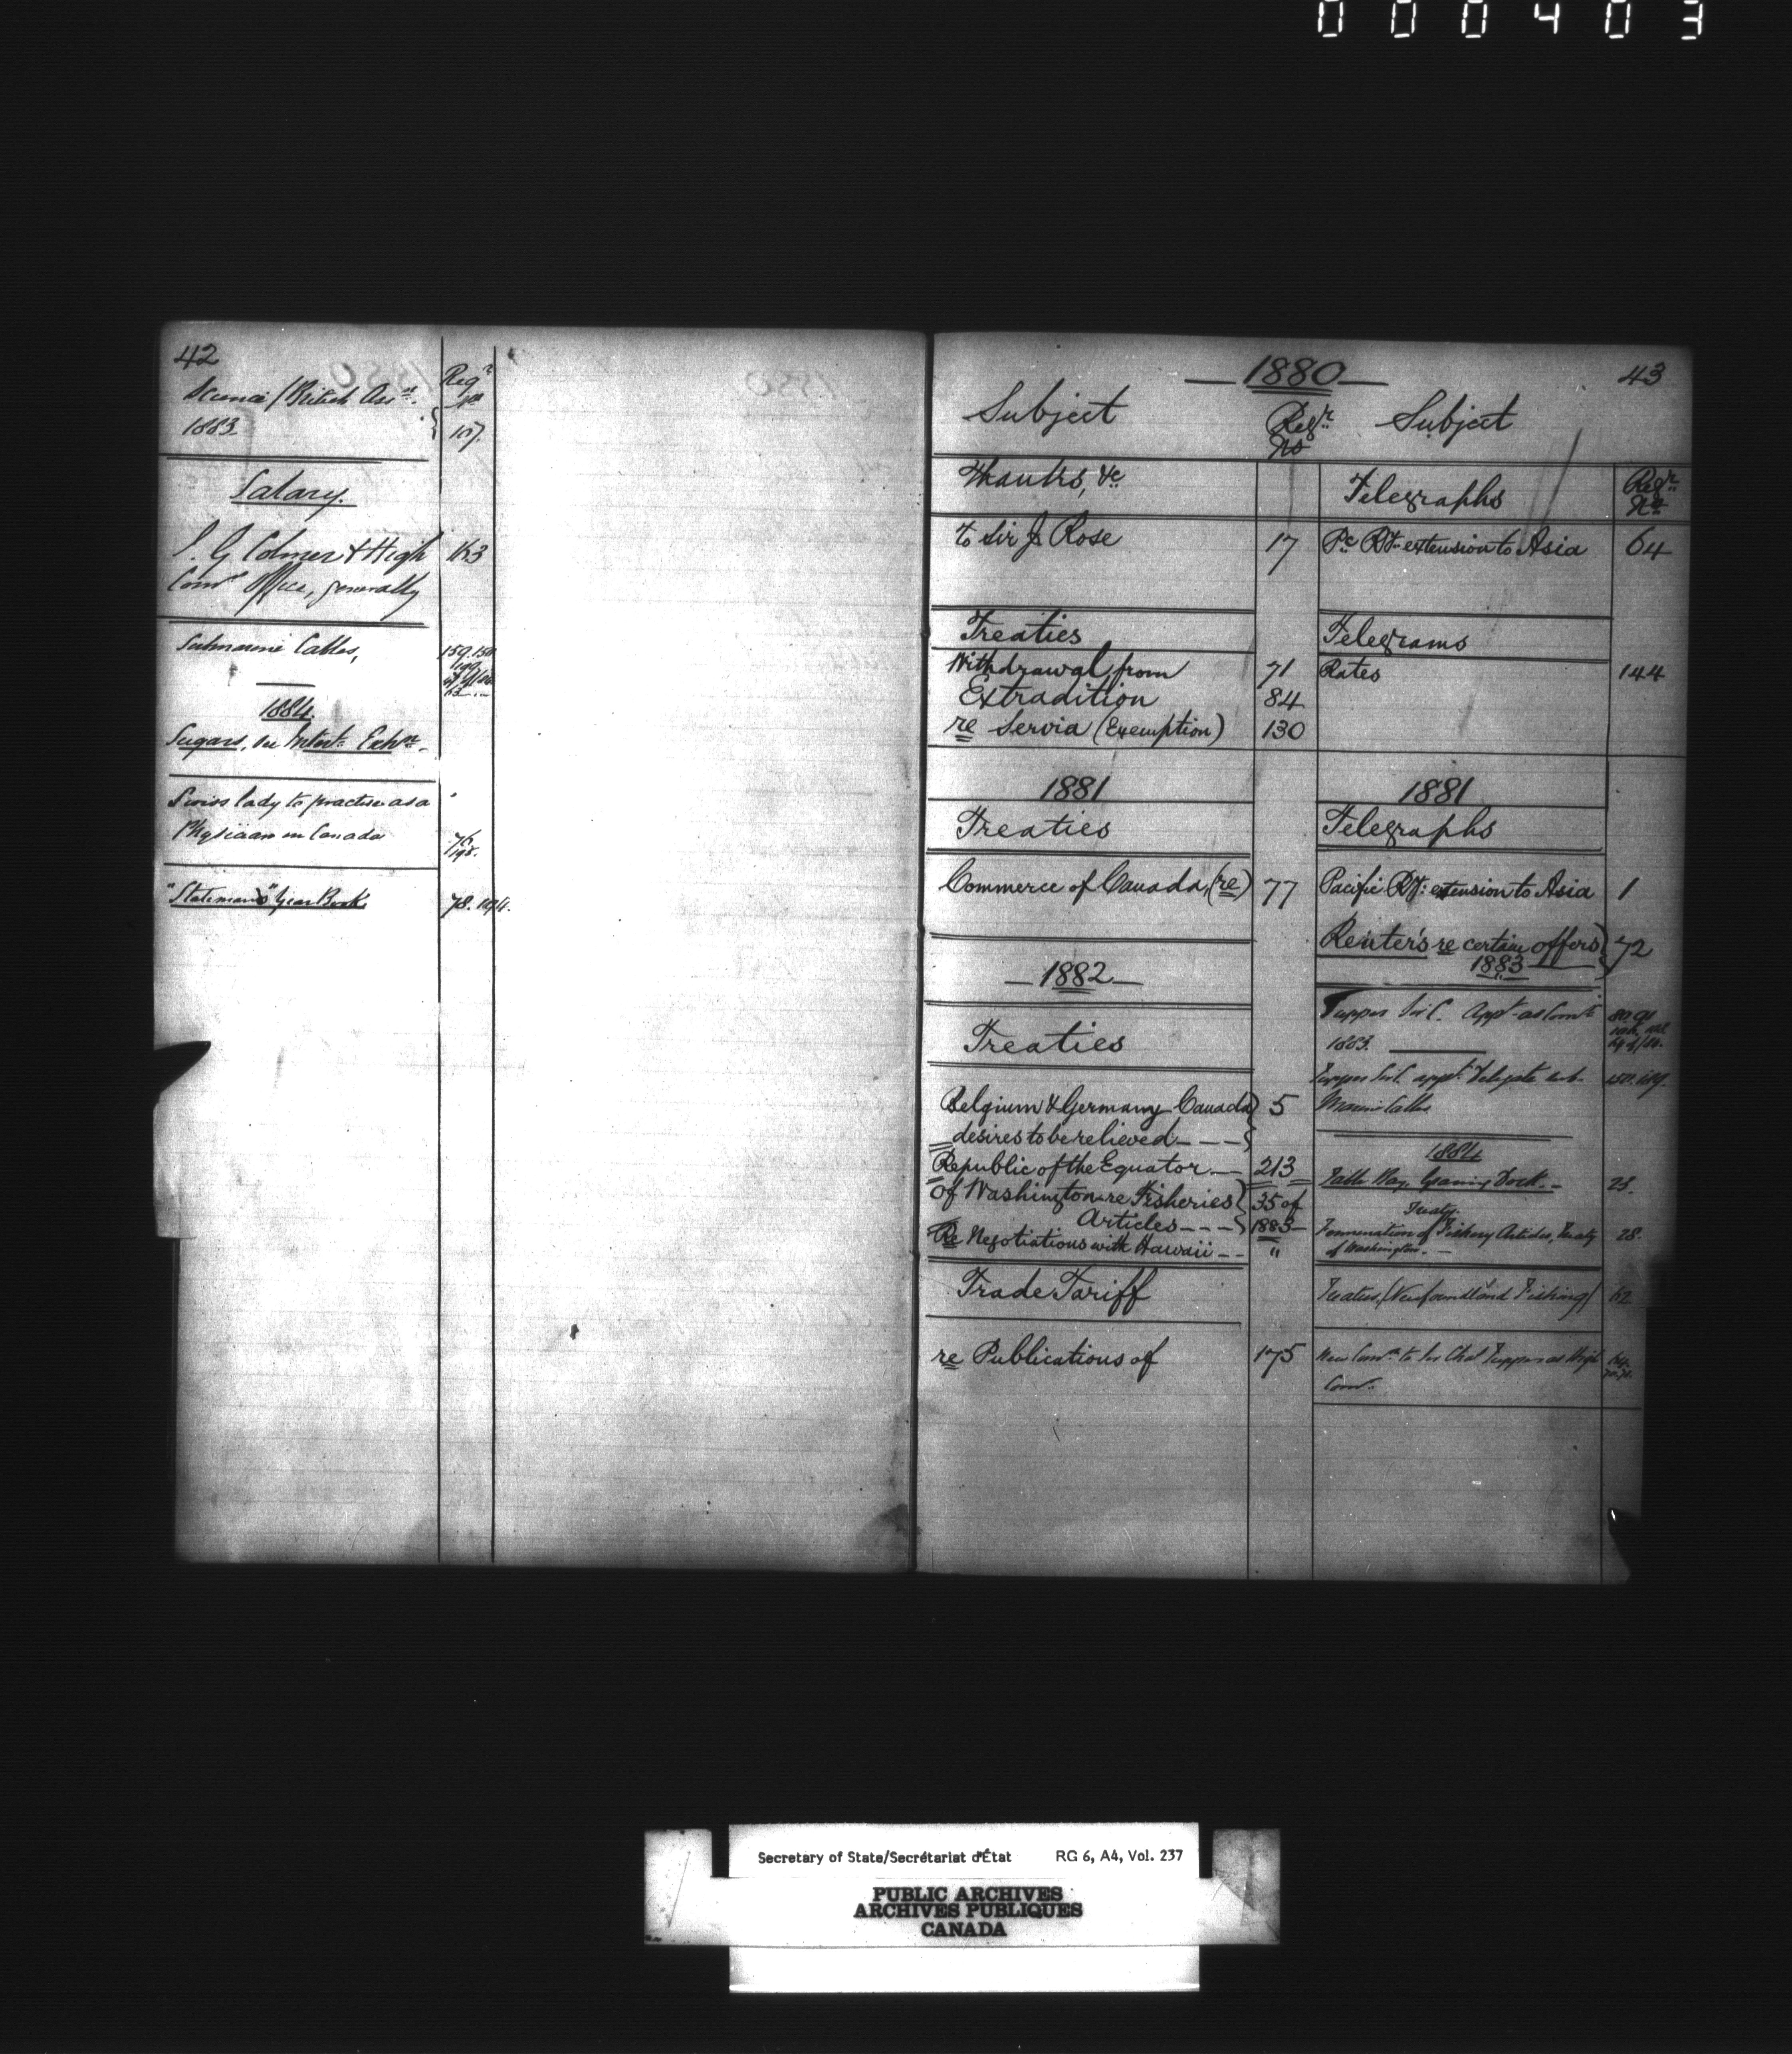 000403
42
Science (British Assn.
Regr No
1883 } 157.
Salary.
J. G Colmer & High 163
Comr Office, generally
Submarine Cables, 159.
1884
Sugars, see Internt Exhn.
Swiss lady to practise as a
Physician in Canada 76
198.
"Statesman's" Year Book 78.
— 1880 — 43
Subject Regr No Subject
Thanks, &c
to Sir J. Rose 17
Treaties
Withdrawal from 71
Extradition 84
re Servia (Exemption) 130
1881
Treaties
Commerce of Canada, (re) 77
— 1882 —
Treaties
Belgium & Germany Canada } 5
desires to be relieved - - - }
Republic of the Equator — 213
of Washington re Fisheries } 35 of
Articles - - - } 1883 —
Re Negotiations with Hawaii - - "
Trade Tariff
re Publications of 175
Telegraphs Regr No
Pc Ry. extension to Asia 64
Telegrams
Rates 144
1881
Telegraphs
Pacific Ry: extension to Asia 1
Reuter's re certain offers } 72
1883
Tupper Sir C. Appt as Comr
1883.
Tupper Sir C. appt. Delegate Sub-
Marine Cables
1884
Table Bay, Graving Dock. — 23.
Treaty.
Termination of Fishery Articles, Treaty 28.
of Washington. —
Treaties, (Newfoundland Fishing) 62
New Comn to Sir Chas Tupper as High
Comr.
Secretary of State/Secrétariat d'État RG 6, A4, Vol. 237
PUBLIC ARCHIVES
ARCHIVES PUBLIQUES
CANADA